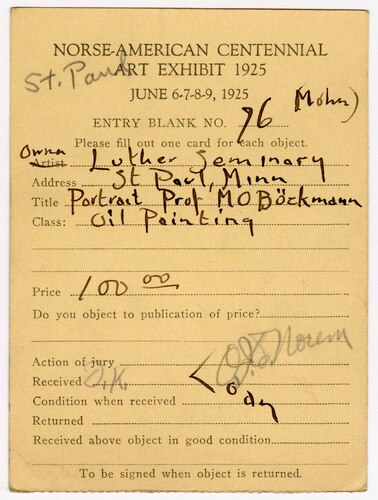 NORSE-AMERICAN CENTENNIAL
St. Paul ART EXHIBIT 1925
JUNE 6-7-8-9, 1925
ENTRY BLANK NO. 76 (Mohn)
Please fill out one card for each object.
Owner Artist Luther Seminary
Address St Paul, Minn
Title Portrait Prof M.O. Böckmann
Class: Oil Painting
Price 100 00
Do you object to publication of price?
Action of jury
Received O.K.
Condition when received
Returned
Received above object in good condition
To be signed when object is returned.